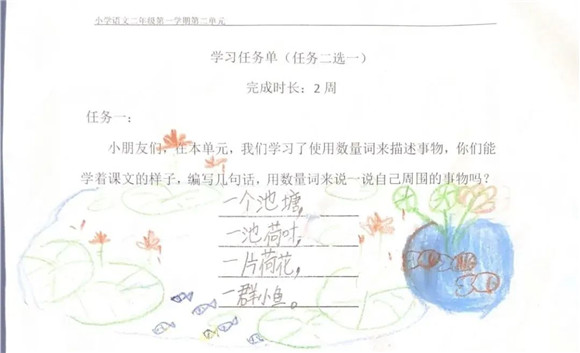 小学语文二年级第一学期第二单元
学习任务单（任务二选一）
完成时长：2周
任务一：
小朋友们，在本单元，我们学习了使用数量词来描述事物，你们能
学着课文的样子，编写几句话，用数量词来说一说自己周围的事物吗？
一个池塘，
一池荷叶，
一片荷花，
一群小鱼。